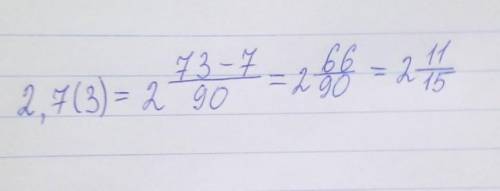 2,7(3) = 2 73-7/90 = 2 66/90 = 2 11/15